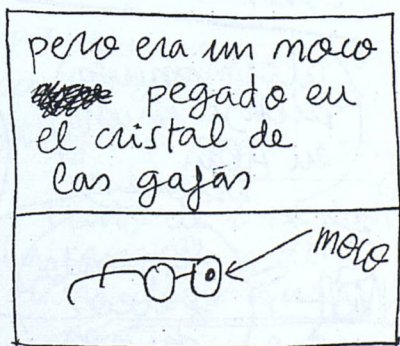 pero era un moco
pegado en
el cristal de
las gafas
moco